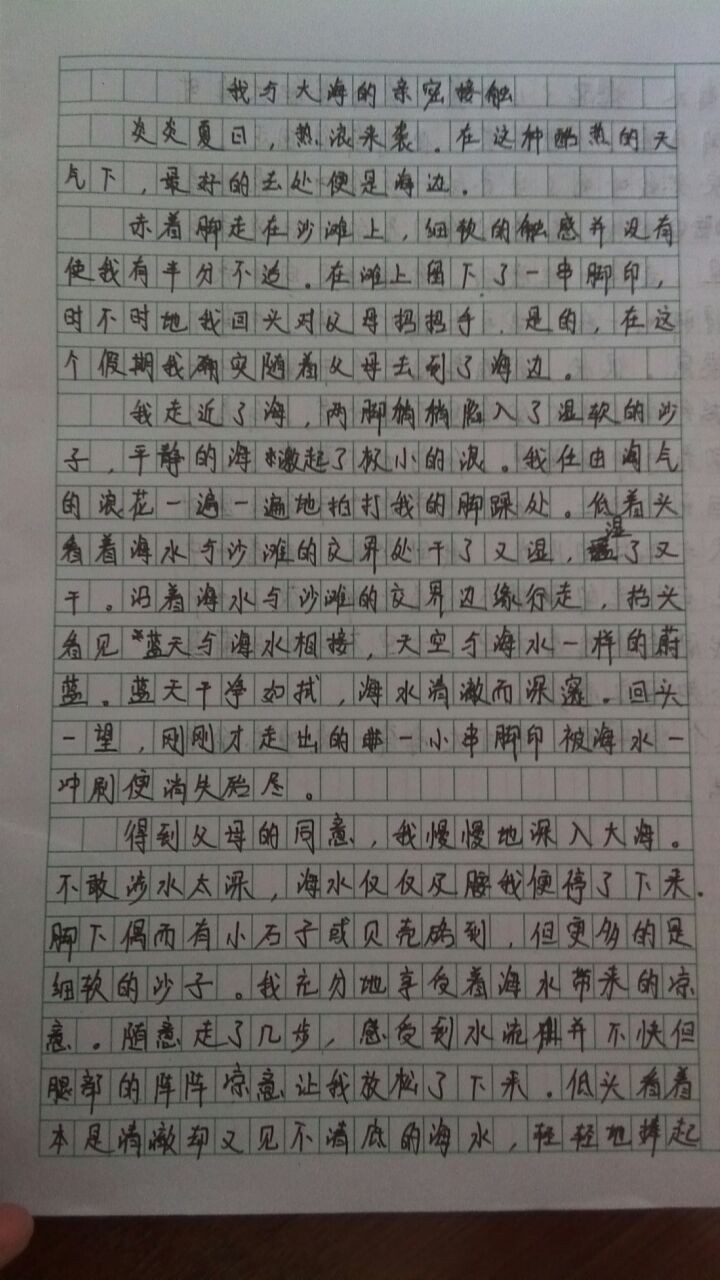 我与大海的亲密接触
炎炎夏日，热浪来袭。在这种酷热的天
气下，最好的去处便是海边。
赤着脚走在沙滩上，细软的触感并没有
使我有半分不适。在滩上留下了一串脚印，
时不时地我回头对父母招招手。是的，在这
个假期我确实随着父母去到了海边。
我走近了海，两脚稍稍陷入了湿软的沙
子，平静的海水激起了极小的浪。我任由淘气
的浪花一遍一遍地拍打我的脚踝处。低着头
看着海水与沙滩的交界处干了又湿，湿了又
干。沿着海水与沙滩的交界边缘行走，抬头
看见蓝天与海水相接，天空与海水一样的蔚
蓝。蓝天干净如拭，海水清澈而深邃。回头
一望，刚刚才走出的一小串脚印被海水一
冲刷便消失殆尽。
得到父母的同意，我慢慢地深入大海。
不敢涉水太深，海水仅仅及腰我便停了下来。
脚下偶而有小石子或贝壳硌到，但更多的是
细软的沙子。我充分地享受着海水带来的凉
意。随意走了几步，感受到水流并不快但
腿部的阵阵凉意让我放松了下来。低头看着
本是清澈却又见不清底的海水，轻轻地捧起